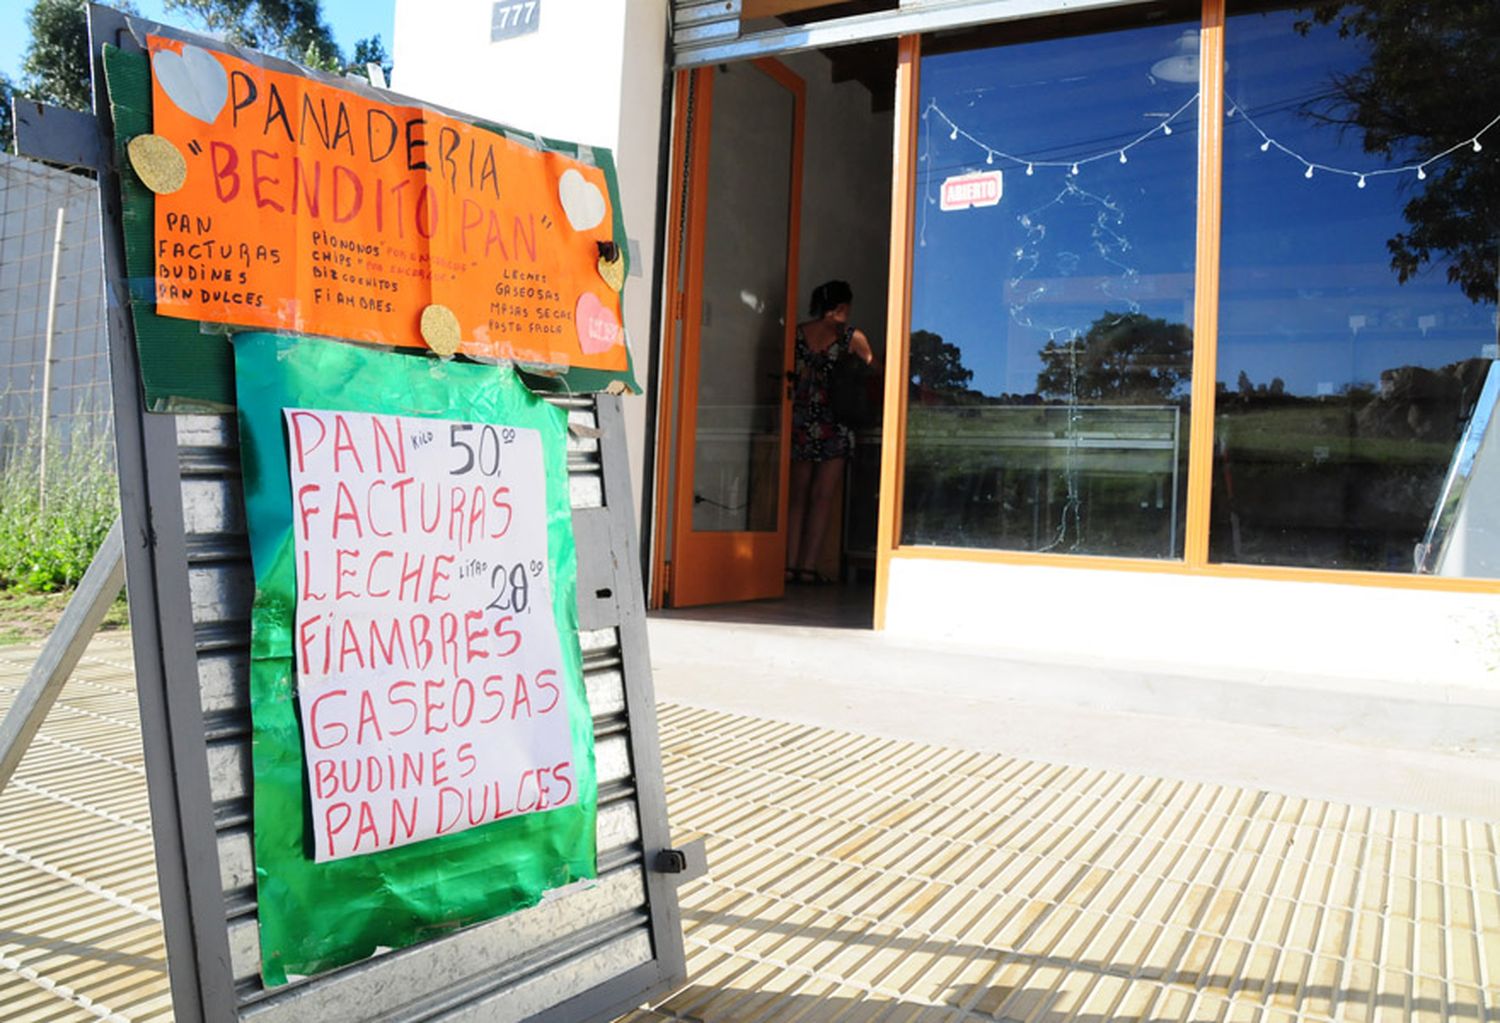 777
PANADERIA
"BENDITO PAN"
PAN
FACTURAS
BUDINES
PAN DULCES
PIONONOS "POR ENCARGUE"
CHIPS "POR ENCARGUE"
BIZCOCHITOS
FIAMBRES.
LECHES
GASEOSAS
MASAS SECAS
PASTA FROLA
PAN KILO 50,00
FACTURAS
LECHE LITRO 28,00
FIAMBRES
GASEOSAS
BUDINES
PAN DULCES
ABIERTO